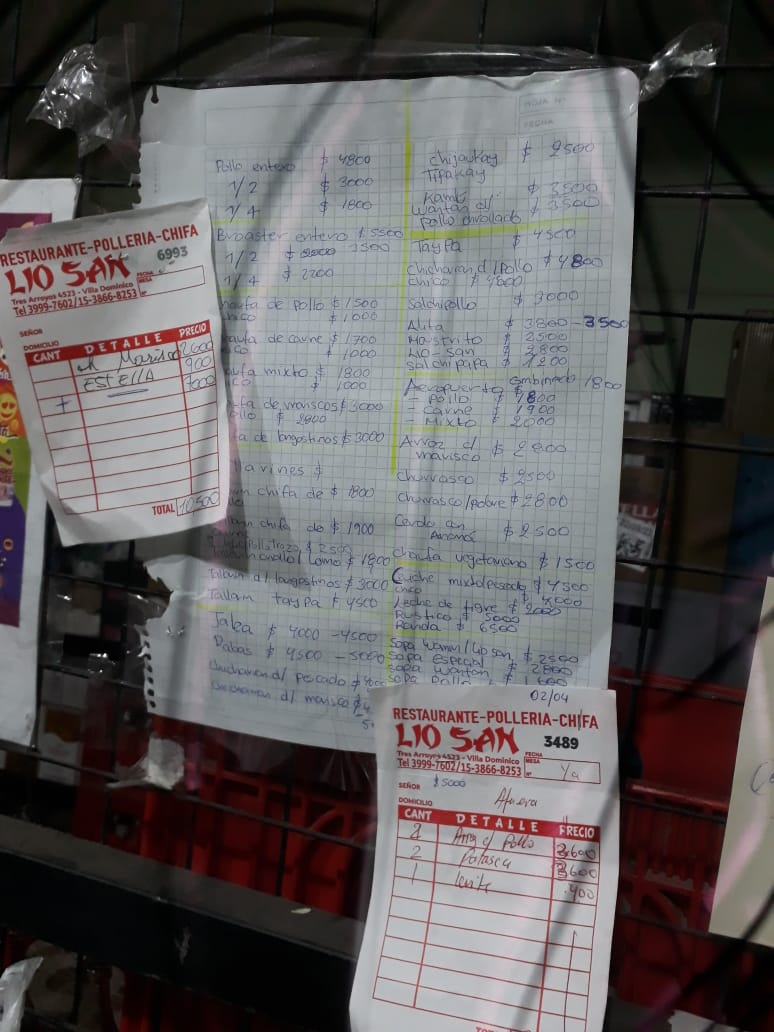 HOJA Nº
FECHA
Pollo entero $ 4800
1/2 $ 3000
1/4 $ 1800
Broaster entero $ 5500
1/2 $ 3500
1/4 $ 2200
haufa de pollo $ 1500
hico $ 1000
aufa de carne $ 1700
$ 1000
aufa mixto $ 1800
ico $ 1000
fa de mariscos $ 3000
ollo $ 2800
fa de langostinos $ 3000
llavines $
chifa de $ 1800
chifa de $ 1900
$ 2500
Lomo $ 1800
Tallarin d/ langostinos $ 3000
Tallarin taypa $ 4500
Jalea $ 4000 - 4500
Pabas $ 4500 - 5000
chicharron d/ pescado
chicharron d/ marisco
chijaukay $ 2500
Tipakay
Kamlú $ 3500
Wantan d/ $ 3500
pollo enrollado
Taypa $ 4500
Chicharon d/Pollo $ 4800
chico $ 4000
Salchipollo $ 3000
Alita $ 3800 - 3500
Mostrito $ 2500
Lio-san $ 2800
Salchipapa $ 1200
Aeropuerto Combinado 1800
- Pollo $ 1800
- Carne $ 1900
- Mixto $ 2000
Arroz c/ marisco $ 2800
Churrasco $ 2500
Churrasco/pobre $ 2800
Cerdo con $ 2500
chaufa vegetariano $ 1500
Ceviche mixto/pescado $ 4500
chico $ 4000
Leche de tigre $ 2000
Rustico $ 5000
Ronda $ 6500
Sopa Wamin/Lio san $ 2500
Sopa especial $ 2800
Sopa Wantan $
Sopa Pollo $
RESTAURANTE-POLLERIA-CHIFA
6993
LIO SAN
FECHA
MESA
Nº
Tres Arroyos 4523 - Villa Dominico
Tel 3999-7602/15-3866-8253
SEÑOR
DOMICILIO
CANT DETALLE PRECIO
Marisco 2600
ESTELLA 900
+ 7000
TOTAL 10500
02/04
RESTAURANTE-POLLERIA-CHIFA
LIO SAN 3489
Tres Arroyos 4523 - Villa Dominico
Tel 3999-7602/15-3866-8253
FECHA
MESA
Nº Ya
$5000
SEÑOR
Afuera
DOMICILIO
CANT DETALLE PRECIO
2 Arroz c/ Pollo 3600
2 Patasca 3600
1 levite 400